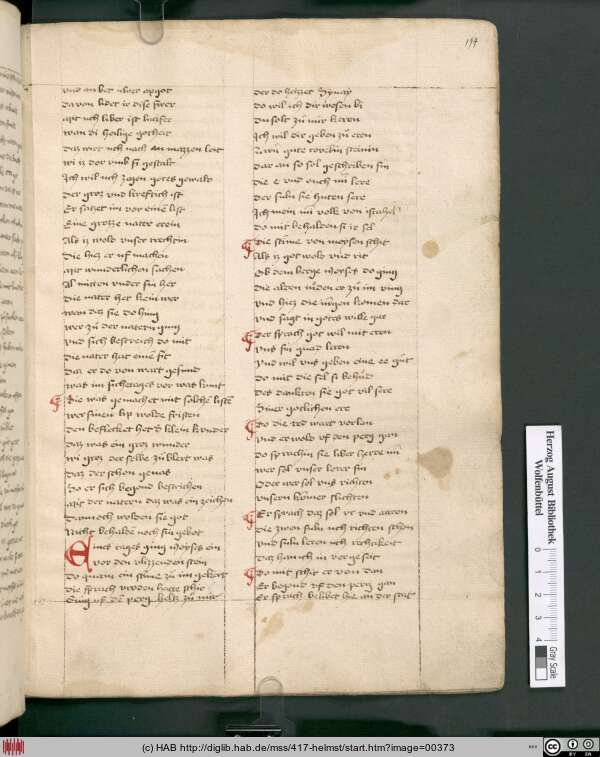 194
vnd an bet uwer apgot
da von lidet ir dise swer
apt uch lieber ist lucifer
wan di heilige gotheit
daz wirt uch nach an mazzen leit
wi iz der vmb si gestalt
Ich wil uch zeigen gotes gewalt
der groz vnd kreftich ist
Er satzt im vor eine list
Eine grozze nater erein
Als iz wold vnser trechtin
Die hiez er uf machen
mit wunderlichen sachen
Al mitten vnder sin her
die nater het kein wer
wen daz sie do hing
wer zu der natern ging
vnd sich bestreich do mit
die nater hat eine sit
daz er do von wart gesund
waz im suchetages vor was kunt
Die was gemachet mit solche listen
wer sinen lip wolde fristen
den beflecket het klein kunder
daz was ein groz wunder
wi groz der selbe zublert was
daz der schon genas
So er sich begond bestrichen
mit der natern daz was ein zeichen
Dannoch wolden sie got
Nicht behalden noch sin gebot
Eines tages ging moyses ein
vor den vlizzenden stein
do quam ein stime zu im gekert
die sprach vroden herre schir
Ging uf den perg beltz zu mir
der do heizzet Synay
do wil ich dir wesen bi
du solt zu mir keren
Ich wil dir geben zu eren
zwu gute taveln steinin
dar an so sol geschriben sin
die e vnd ouch min lere
der suln sie huten sere
Ich mein min volk von israhel
do mit behalden si ir sel
Die stime von moysen schit
Als iz got wold vnd rit
Ob dem berge moyses do ging
die alden iuden er zu im ving
vnd hiez die iungen komen dar
vnd sagt in gotes wille gar
Er sprach got wil mit eren
vns sin gnad leren
vnd wil vns geben eine ee gut
do mit die sel si behut
des dankten sie got vil sere
Siner gotlichen ere
Do die red wart vorlan
vnd er wold uf den perg gan
do sprachin sie liber herre min
wer sol vnser lerer sin
Oder wer sol vns richten
vnsern kumer slichten
Er sprach daz sol vr vnd aaron
die zwen suln uch richten schon
vnd suln leren uch rechtikeit
daz han ich in vor geseit
Do mit schit er von dan
Er begond uf den perg gan
Er sprach belibet hie an der stat
Herzog August Bibliothek
Wolfenbüttel
0 1 2 3 4
Gray Scale
(c) HAB http://diglib.hab.de/mss/417-helmst/start.htm?image=00373
cc BY SA